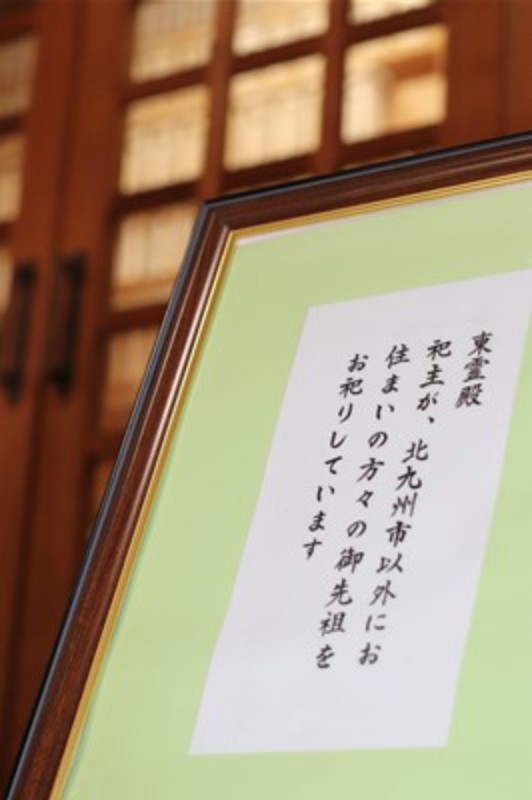 東霊殿
祀主が、北九州市以外にお
住まいの方々の御先祖を
お祀りしています